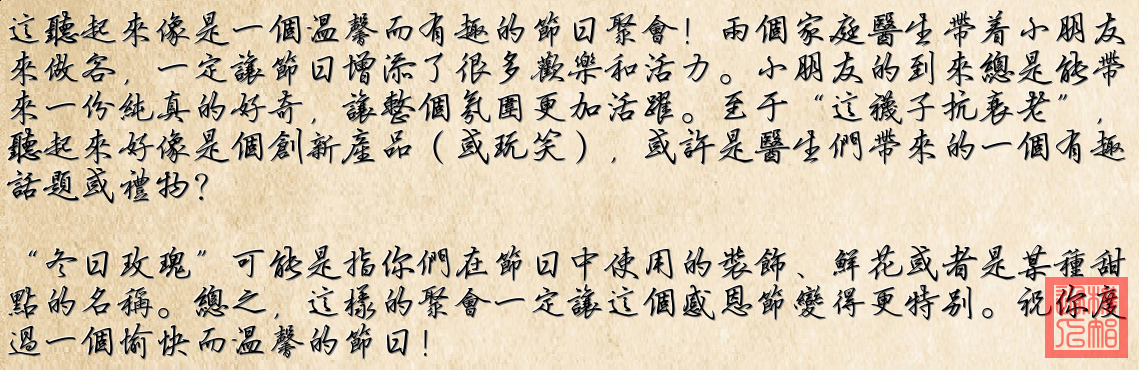 這聽起來像是一個溫馨而有趣的節日聚會！兩個家庭醫生帶着小朋友
來做客，一定讓節日增添了很多歡樂和活力。小朋友的到來總是能帶
來一份純真的好奇，讓整個氛圍更加活躍。至于“這襪子抗衰老”，
聽起來好像是個創新產品（或玩笑），或許是醫生們帶來的一個有趣
話題或禮物？
“冬日玫瑰”可能是指你們在節日中使用的裝飾、鮮花或者是某種甜
點的名稱。總之，這樣的聚會一定讓這個感恩節變得更特别。祝你度
過一個愉快而溫馨的節日！